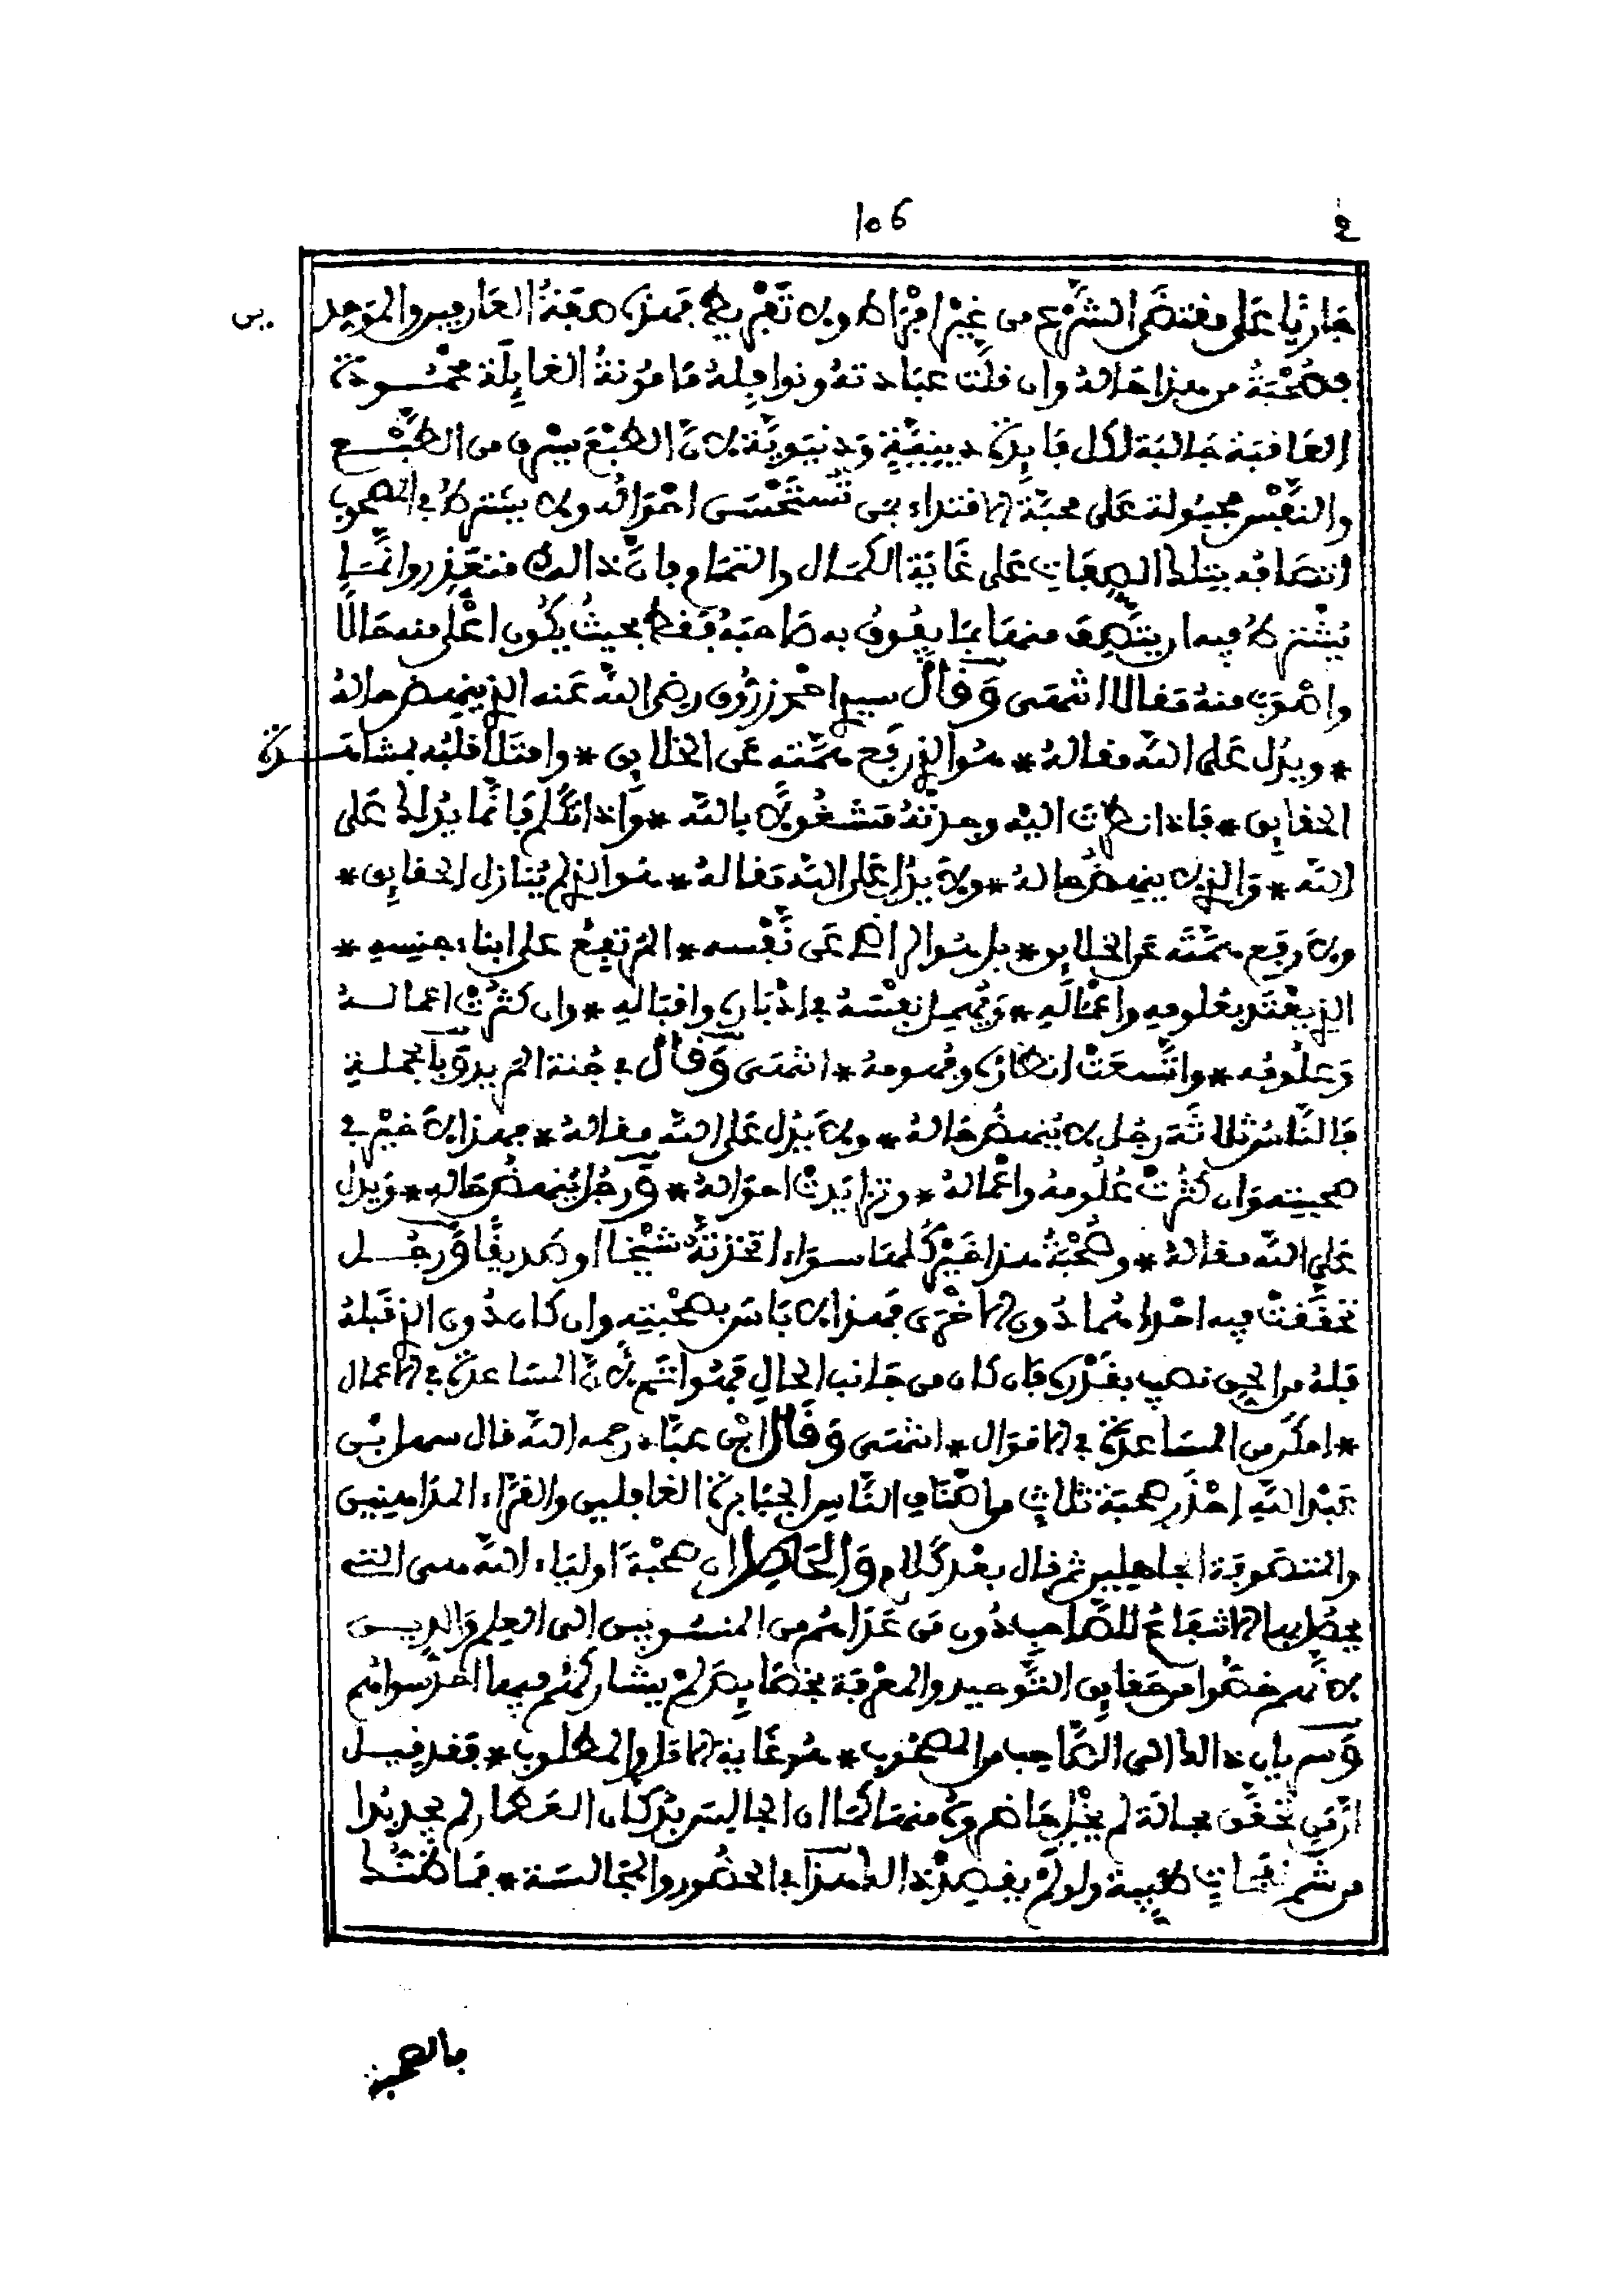 106
جاريا على مقتضى الشرع من غير افراط ولا تفريط فهذه صفة العارفين والموحدين
فصحبة من هذا حاله وان قلت عبادته ونوافله مامونة الغايلة محمودة
العاقبة جالبة لكل فايدة دينية ودنيوية لان الطبع يسرق من الطبع
والنفس مجبولة على محبة الاقتداء بمن تستحسن احواله ولا يشترط في المصحوب
اتصافه بتلك الصفات على غاية الكمال والتمام فان ذالك متعذر وانما
يشترط فيه ان يتصف منها بما يفوق به صاحبه فقط بحيث يكون اعلى منه حالا
واصوب منه مقالا انتهى وقال سيدي احمد زروق رضي الله عنه الذي ينهض حاله
* ويدل على الله مقاله * هو الذي رفع همته عن الخلايق * وامتلا قلبه بمشاهدة
الحقايق * فاذا نظرت اليه وجدته مشغولا بالله * واذا تكلم فانما يدلك على
الله * والذي لا ينهض حاله * ولا يدل على الله مقاله * هو الذي لم ينازل الحقايق *
ولا رفع همته عن الخلايق * بل هو الراض عن نفسه * المرتفع على ابناء جنسه *
الذي يعتد بعلومه واعماله * ويهمل نفسه في ادباره واقباله * وان كثرت اعماله
وعلومه * واتسعت انظاره وفهومه * انتهى وقال في جنة المريد وبالجملة
فالناس ثلاثة رجل لا ينهض حاله * ولا يدل على الله مقاله * فهذا لا خير في
صحبته وان كثرت علومه واعماله * وتزايدت احواله * ورجل ينهض حاله * ويدل
على الله مقاله * وصحبة هذا خير كلها سواء اتخذته شيخا او صديقا ورجل
تحققت فيه احداهما دون الاخرى فهذا لا باس بصحبته وان كان دون الذي قبله
فله من الحق نصيب بقدره فان كان من جانب الحال فهو اتم لان المساعدة في الاعمال
* امكن من المساعدة في الاقوال * انتهى وقال ابن عباد رحمه الله قال سهل بن
عبد الله احذر صحبة ثلاث من اصناف الناس الجبابرة الغافلين والقراء المداهنين
والمتصوفة الجاهلين ثم قال بعد كلام والحاصل ان صحبة اولياء الله هي التي
يحصل بها الانتفاع للصاحب دون من عداهم من المنسوبين الى العلم والدين
لانهم خصوا من حقايق التوحيد والمعرفة بخصايص لم يشاركهم فيها احد سواهم
وسريان ذالك الى الصاحب من المصحوب * هو غاية الامل والمطلوب * فقد قيل
ان من تحقق بحالة لم يخل حاضروه منها كما ان الجالس بدكان العطار لم يجد بدا
من شم نفحات طيبة ولو لم يقصد ذالك هذا في الحضور والمجالسة * فما ظنك
بالصحبة